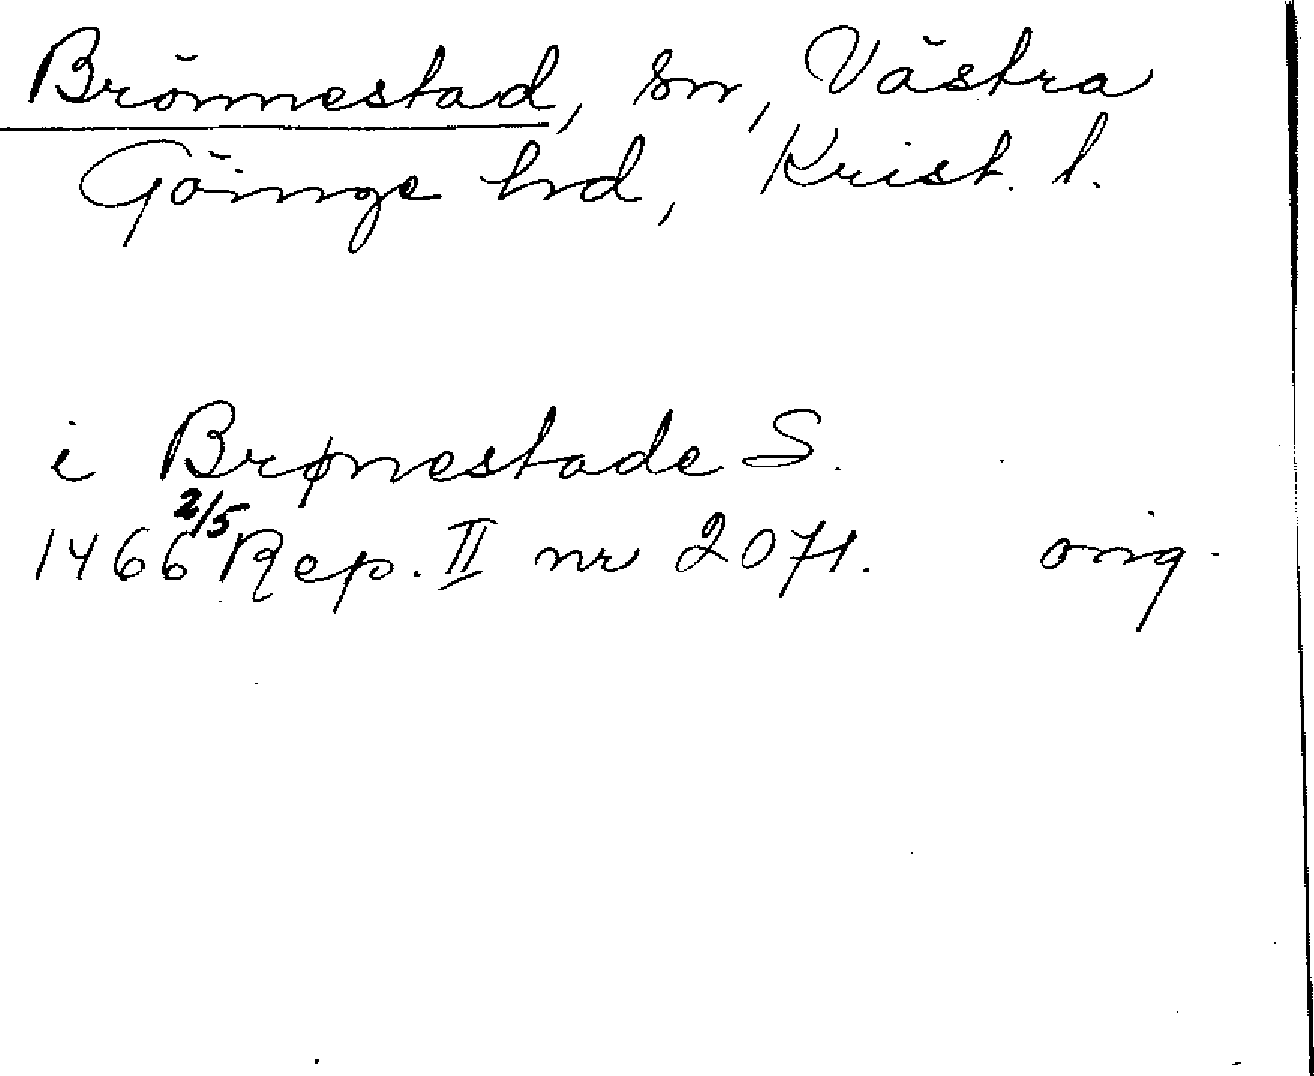 Brönnestad, sn, Västra
Göinge hd, Krist. l.
i Brønestade S.
1466 2/5 Rep. II nr 2071. orig.